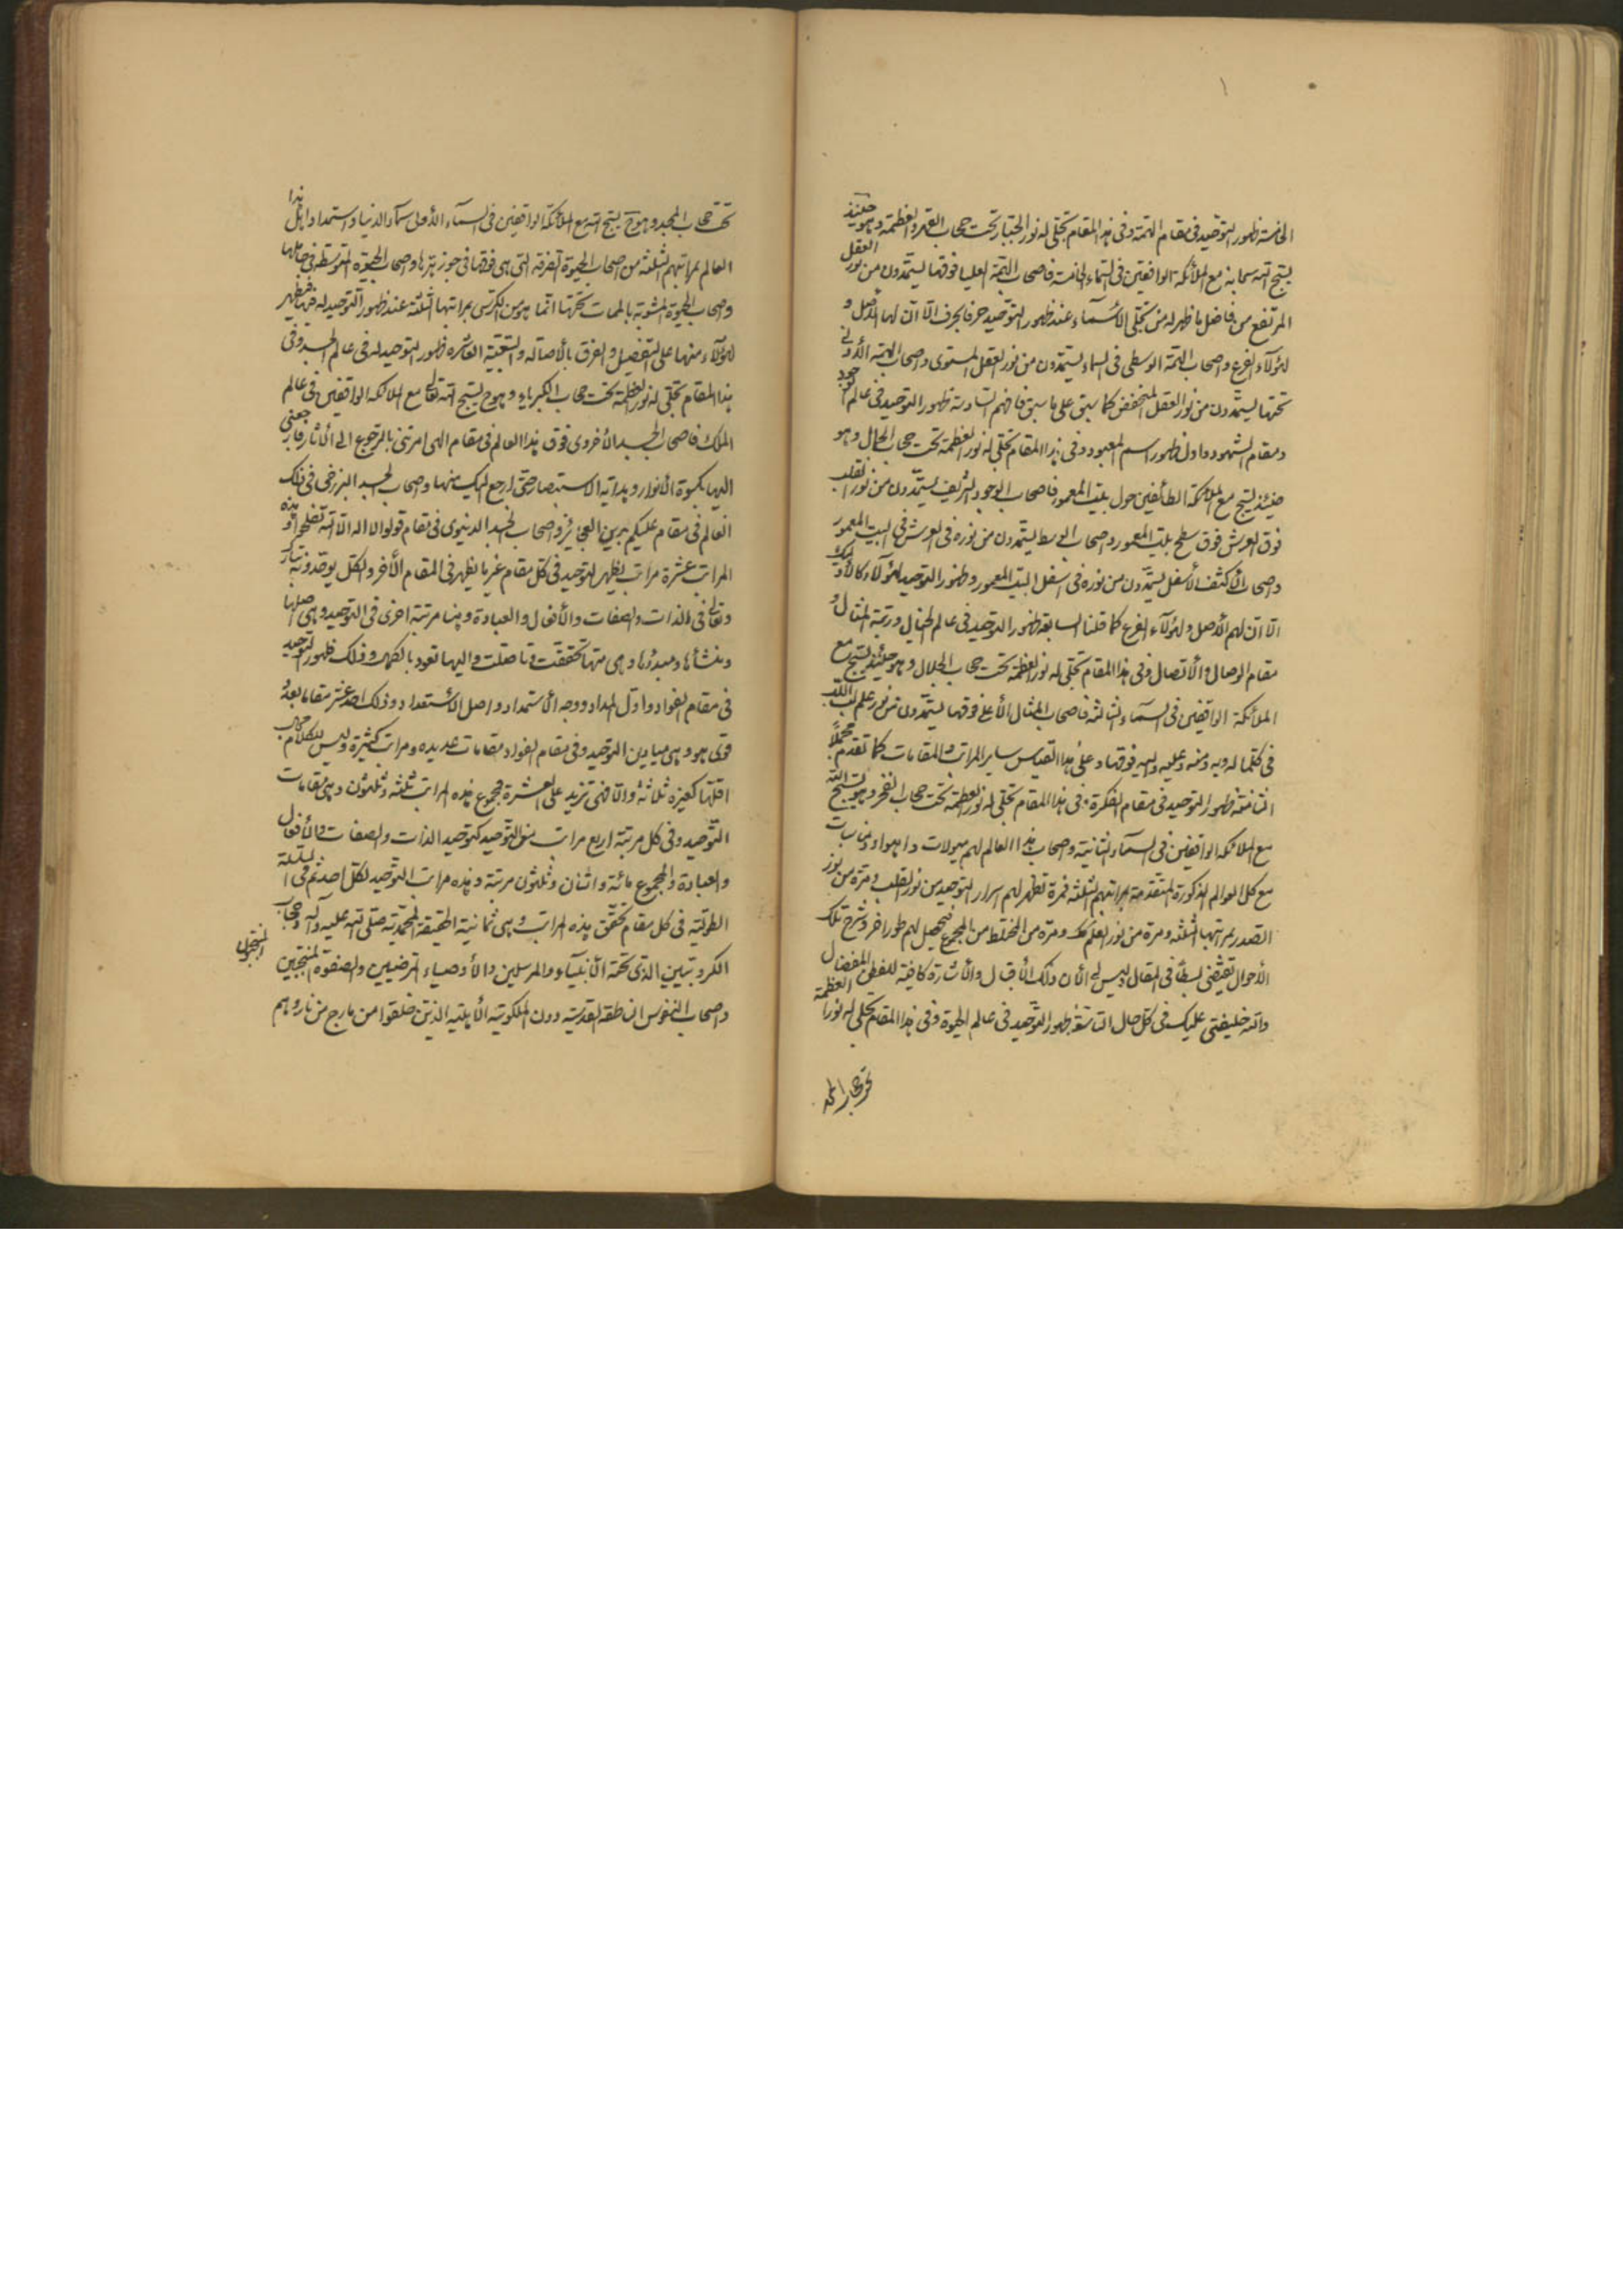 ١
الخامسة ظهور التوحيد فى مقام الهمة وفى هذا المقام تجلى له نور الجبار تحت حجاب القدر والعظمة وهو حينئذ
يسبح الله سبحانه مع الملائكة الواقفين فى السماء الخامسة فاصحاب الهمة العليا فوقها يستمدون من نور العقل
المرتفع من فاضل ما ظهر له من تجلى الأسماء عند ظهور التوحيد حرفا بحرف الا ان لها الاصل و
لهؤلاء الفرع واصحاب الهمة الوسطى فى السماء يستمدون من نور العقل المستوى واصحاب الهمة الأدنى
تحتها يستمدون من نور العقل المنخفض كما سبق على ما سبق فافهم السادسة ظهور التوحيد فى عالم الوجود
ومقام الشهود واول ظهور اسم المعبود وفى هذا المقام تجلى له نور العظمة تحت حجاب الجمال وهو
حينئذ يسبح مع الملائكة الطائفين حول بيت المعمور فاصحاب الوجود الشريف يستمدون من نور القلب
فوق العرش فوق سطح بيت المعمور واصحاب الوسط يستمدون من نوره فى العرش فى البيت المعمور
واصحاب الأكثف الأسفل يستمدون من نوره فى اسفل البيت المعمور وظهور التوحيد لهؤلاء كالأولئك
الا ان لهم الأصل ولهؤلاء الفرع كما قلنا السابعة ظهور التوحيد فى عالم الخيال ورتبة المثال و
مقام الوصال والأتصال وفى هذا المقام تجلى له نور العظمة تحت حجاب الجلال وهو حينئذ يسبح مع
الملائكة الواقفين فى السماء الثالثة فاصحاب المثال الأعلى فوقها يستمدون من نور علم الله
فى كلما له وبه ومنه وعليه واليه فوقها وعلى هذا القياس ساير المراتب والمقامات كما تقدم مجملا
الثامنة ظهور التوحيد فى مقام الفكرة فى هذا المقام تجلى له نور العظمة تحت حجاب الفخر وهو يسبح الله
مع الملائكة الواقفين فى السماء الثانية واصحاب هذا العالم لهم ميولات واهواء ومناسبات
مع كل العوالم المذكورة المتقدمة بمراتبهم الثلثة فمرة تظهر لهم اسرار التوحيد من نور القلب ومرة من نور
الصدر بمراتبها الثلثة ومرة من نور العلم كك ومرة من المختلط من المجموع فيحصل لهم طور اخر وشرح تلك
الأحوال يقتضى بسطا فى المقال وليس لى الأن ذلك الأقبال والأشارة كافية للفطن المفضال
والله خليفتى عليك فى كل حال التاسعة ظهور التوحيد فى عالم الحيوة وفى هذا المقام تجلى له نور العظمة
تحت حجاب المجد
تحت حجاب المجد وهو ح يسبح الله مع الملائكة الواقفين فى السماء الأولى سماء الدنيا واستمداد اهل هذا
العالم بمراتبهم الثلثة من اصحاب الحيوة الصرفة التى هى فوقها فى جوزهرها واصحاب الحيوة المتوسطة فى حاملها
واصحاب الحيوة المشوبة بالممات تحتها انما هو من الكرسى بمراتبها الثلثة عند ظهور التوحيد له فيها فيظهر
لهؤلاء منها على التفصيل والفرق بالأصالة والتبعية العاشرة ظهور التوحيد له فى عالم الجسد وفى
هذا المقام تجلى له نور العظمة تحت حجاب الكبرياء وهو ح يسبح الله تعالى مع الملائكة الواقفين فى عالم
الملك فاصحاب الجسد الأخروى فوق هذا العالم فى مقام الهى امرتنى بالرجوع الى الأثار فارجعنى
اليها بكسوة الأنوار وهداية الاستبصار حتى ارجع اليك منها واصحاب الجسد البرزخى فى ذلك
العالم فى مقام عليكم بدين العجائز واصحاب الجسد الدنيوى فى مقام قولوا لا اله الا الله تفلحوا وهذه
المراتب عشرة مراتب يظهر التوحيد فى كل مقام غير ما يظهر فى المقام الأخر والكل يوحدونه تبارك
وتعالى فى الذات والصفات والأفعال والعبادة وهنا مرتبة اخرى فى التوحيد وهى اصلها
ومنشأها ومبدؤها وهى منها تحققت وتاصلت واليها تعود بالكمال وذلك ظهور التوحيد
فى مقام الفؤاد واول المداد ووجه الأستمداد واصل الأستعداد وذلك احد عشر مقاما بعدد
قوى هو وهى ميادين التوحيد وفى مقام الفؤاد مقامات عديدة ومراتب كثيرة وليس للكلام مجال
اقلها كغيره ثلاثة والا فهى تزيد على العشرة فمجموع هذه المراتب ثلثة وثلثون وهى مقامات
التوحيد وفى كل مرتبة اربع مراتب من التوحيد كتوحيد الذات والصفات والأفعال
والعبادة والمجموع مائة واثنان وثلثون مرتبة وهذه مراتب التوحيد لكل احد ثم فى السلسلة
الطولية فى كل مقام تحقق هذه المراتب وهى ثمانية الحقيقة المحمدية صلى الله عليه وآله وحجاب
الكروبيين الذى تحته الأنبياء والمرسلين والأوصياء المرضيين والصفوة المنتجبين
المنتجبون
واصحاب النفوس الناطقة القدسية دون الملكوتية الألهية الذين خلقوا من مارج من نار وهم